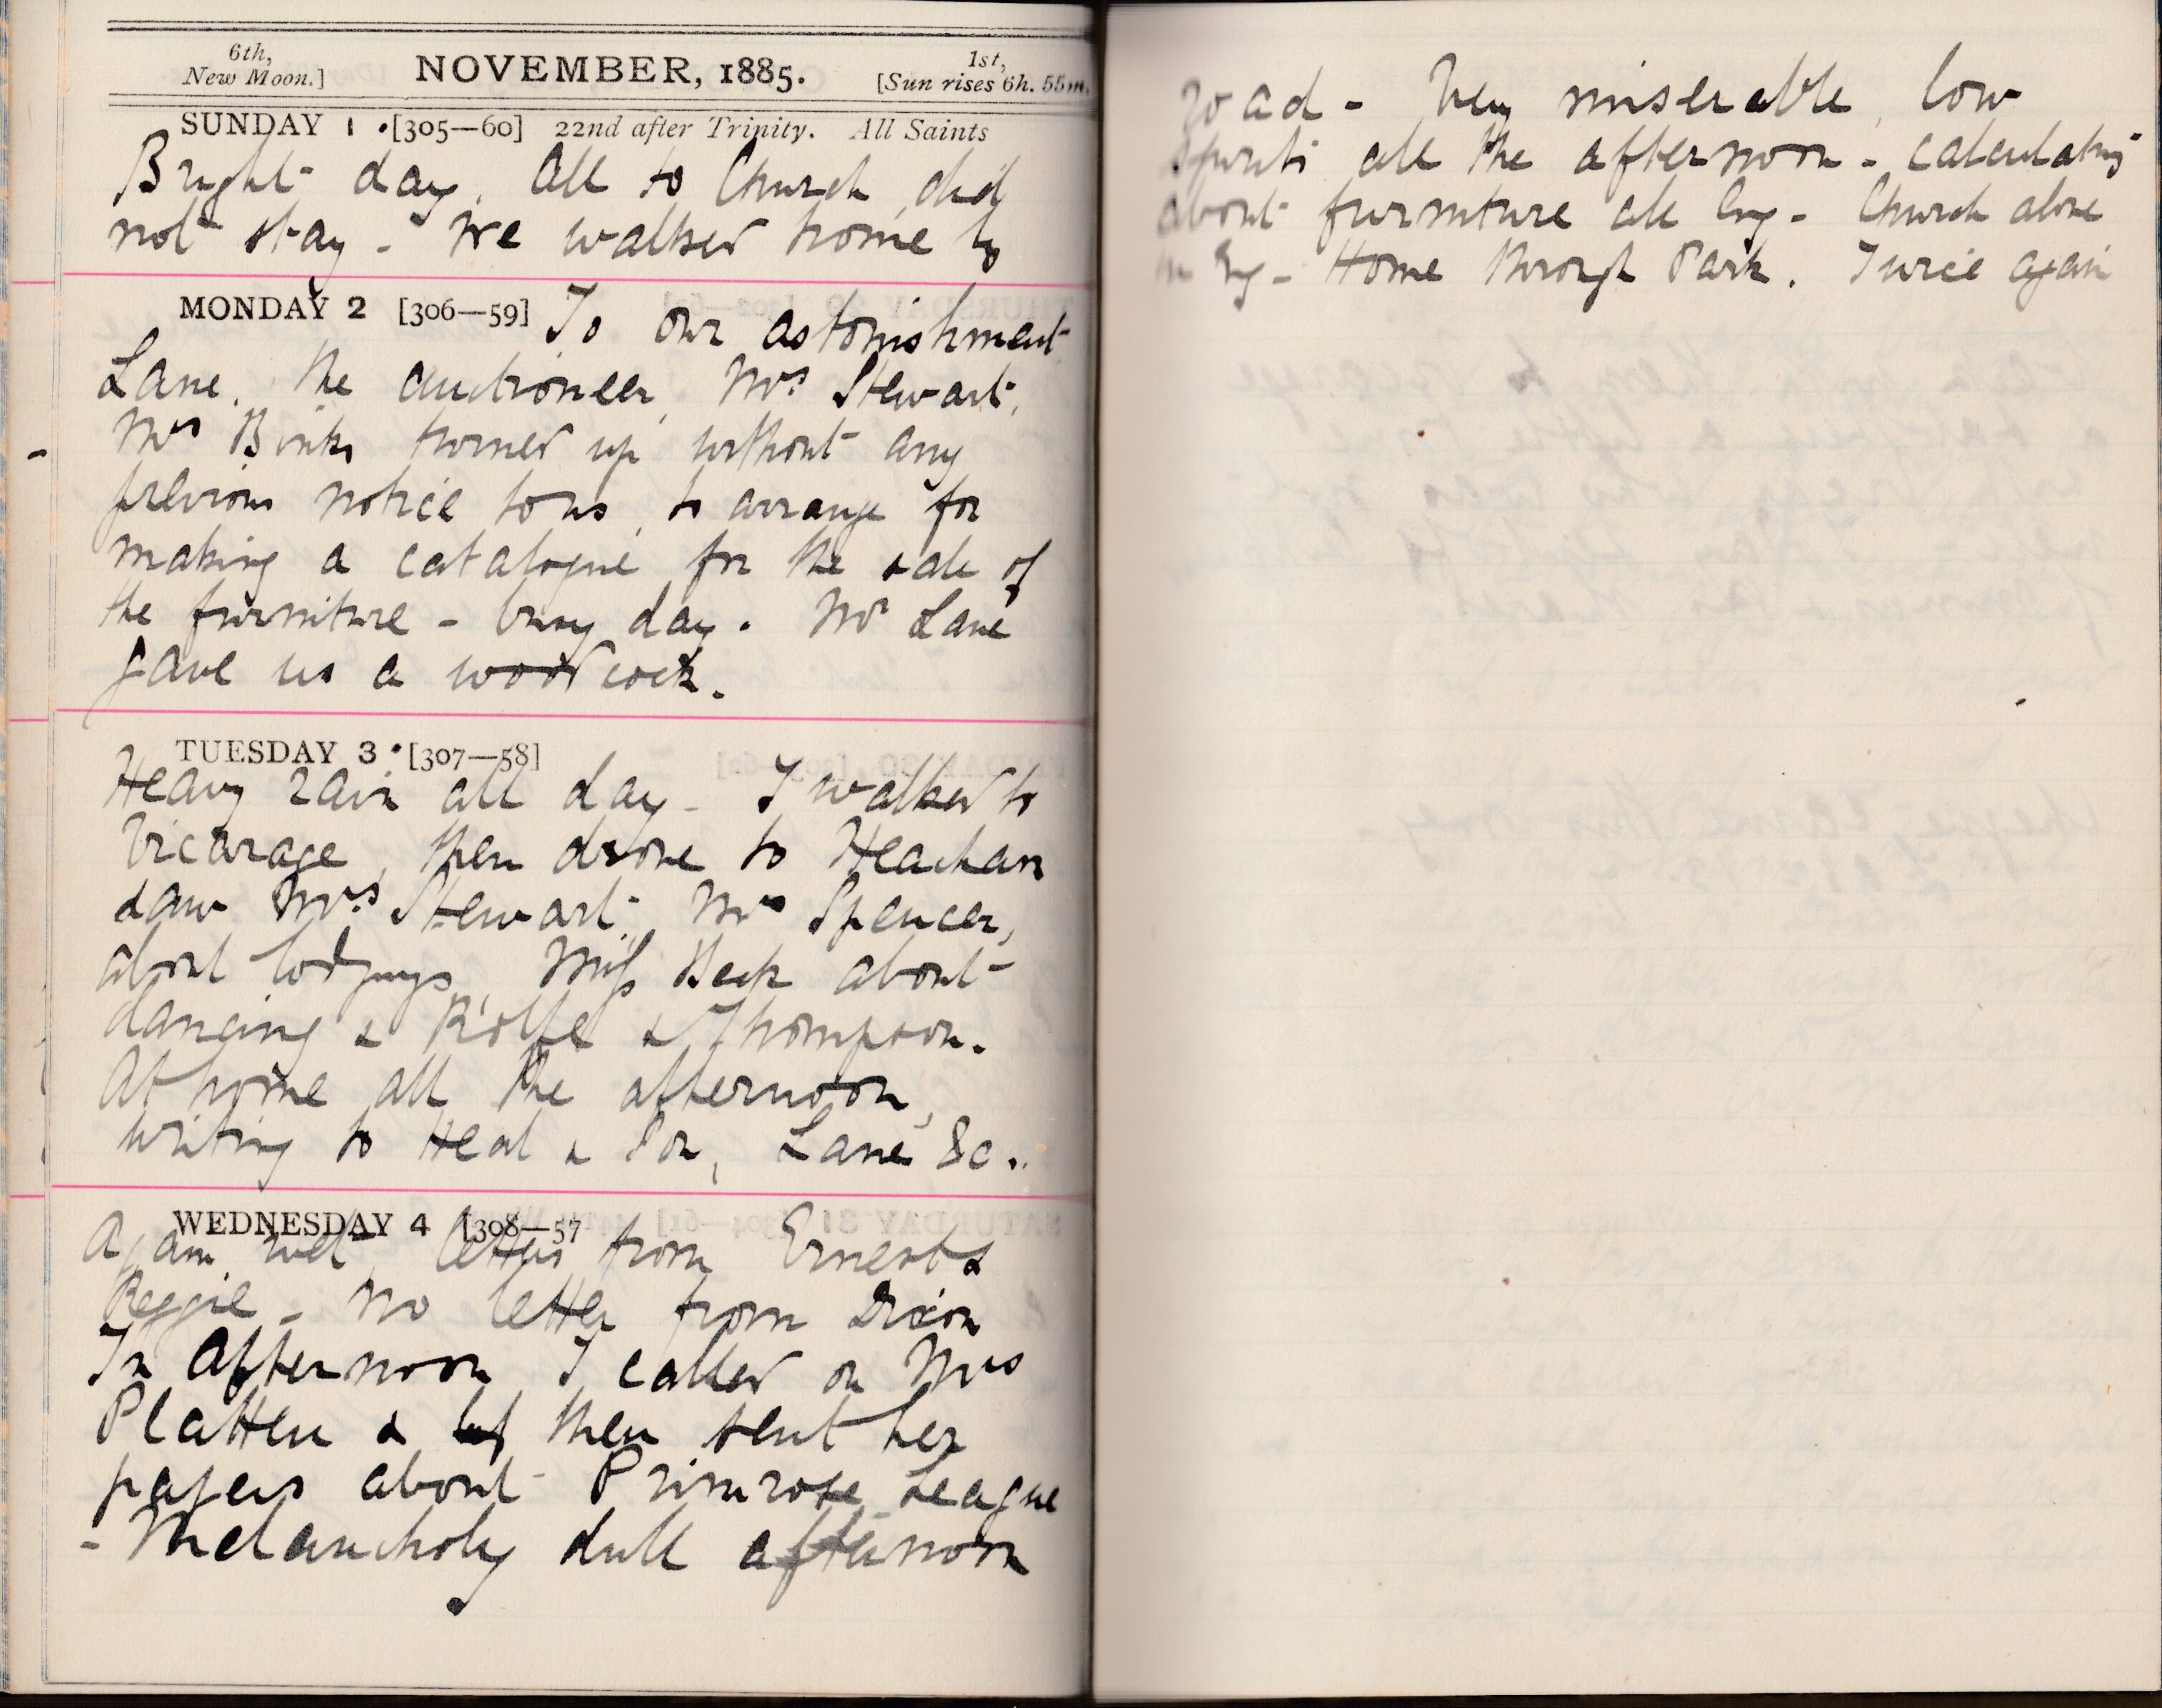 6th,
New Moon.]
NOVEMBER, 1885.
1st,
[Sun rises 6h. 55m.
SUNDAY 1 [305—60] 22nd after Trinity. All Saints
Bright day. All to Church, did
not stay - We walked home by
MONDAY 2 [306—59] To our astonishment
Lane, the auctioneer, Mrs Stewart,
Mrs Binks turned up without any
previous notice to us, to arrange for
making a catalogue for the sale of
the furniture - busy day. Mr Lane
gave us a woodcock.
TUESDAY 3 [307—58]
Heavy rain all day - I walked to
Vicarage, then drove to Heacham
saw Mrs Stewart, Mrs Spencer,
about lodgings, Miss Beck about
dancing & Rolfe & Thompson.
At home all the afternoon,
writing to Heal & Son, Lane &c.
WEDNESDAY 4 [308—57
Again wet, letters from Ernest &
Reggie - no letter from Dixon
In Afternoon I called on Mrs
Platten & then sent her
papers about Primrose League
- Melancholy dull afternoon
road - Very miserable, low
spirits all the afternoon - calculating
about furniture all - Church alone
in Evg - Home through Park. Twice again